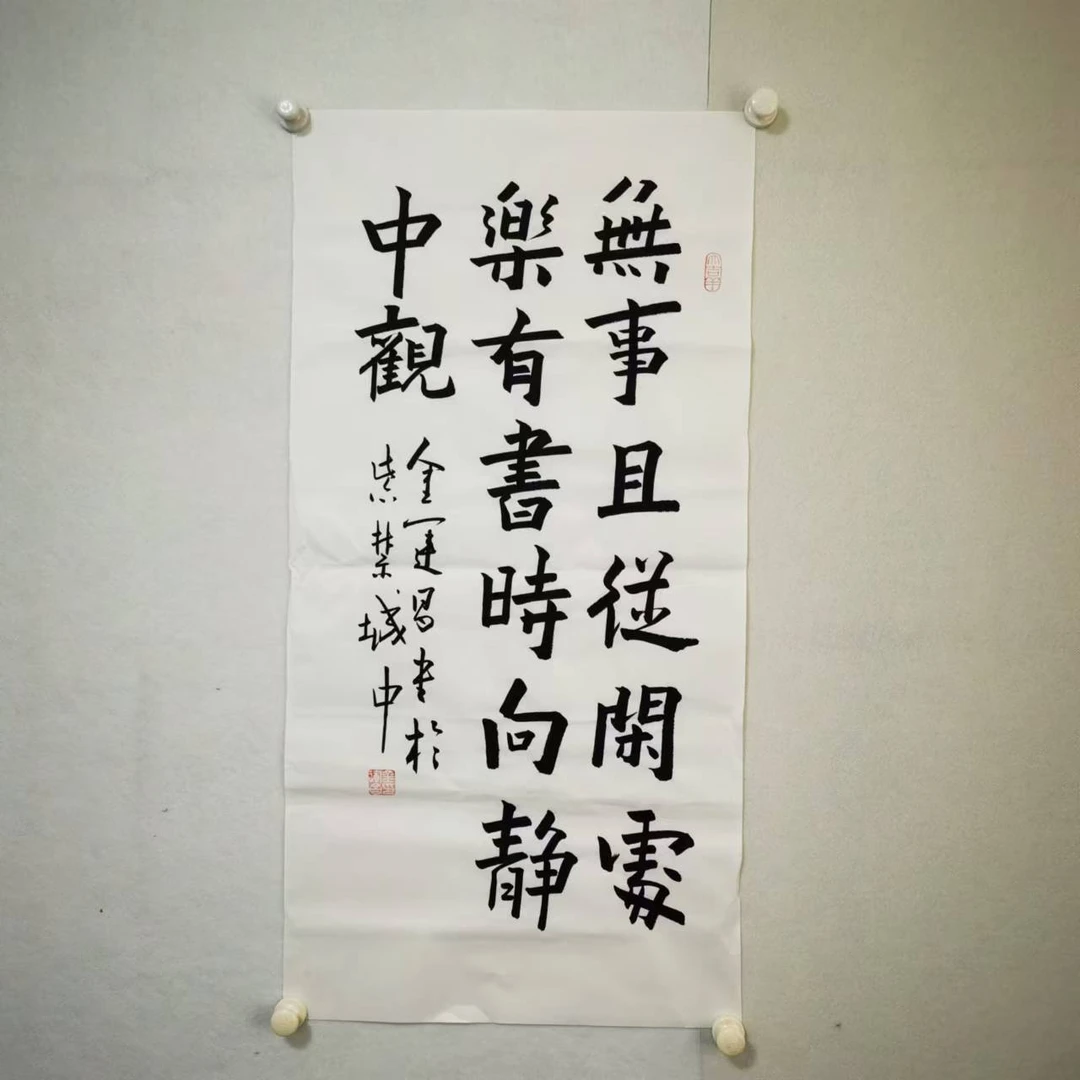 無事且従閑處
楽有書時向静
中觀
金運昌書於
紫禁城中